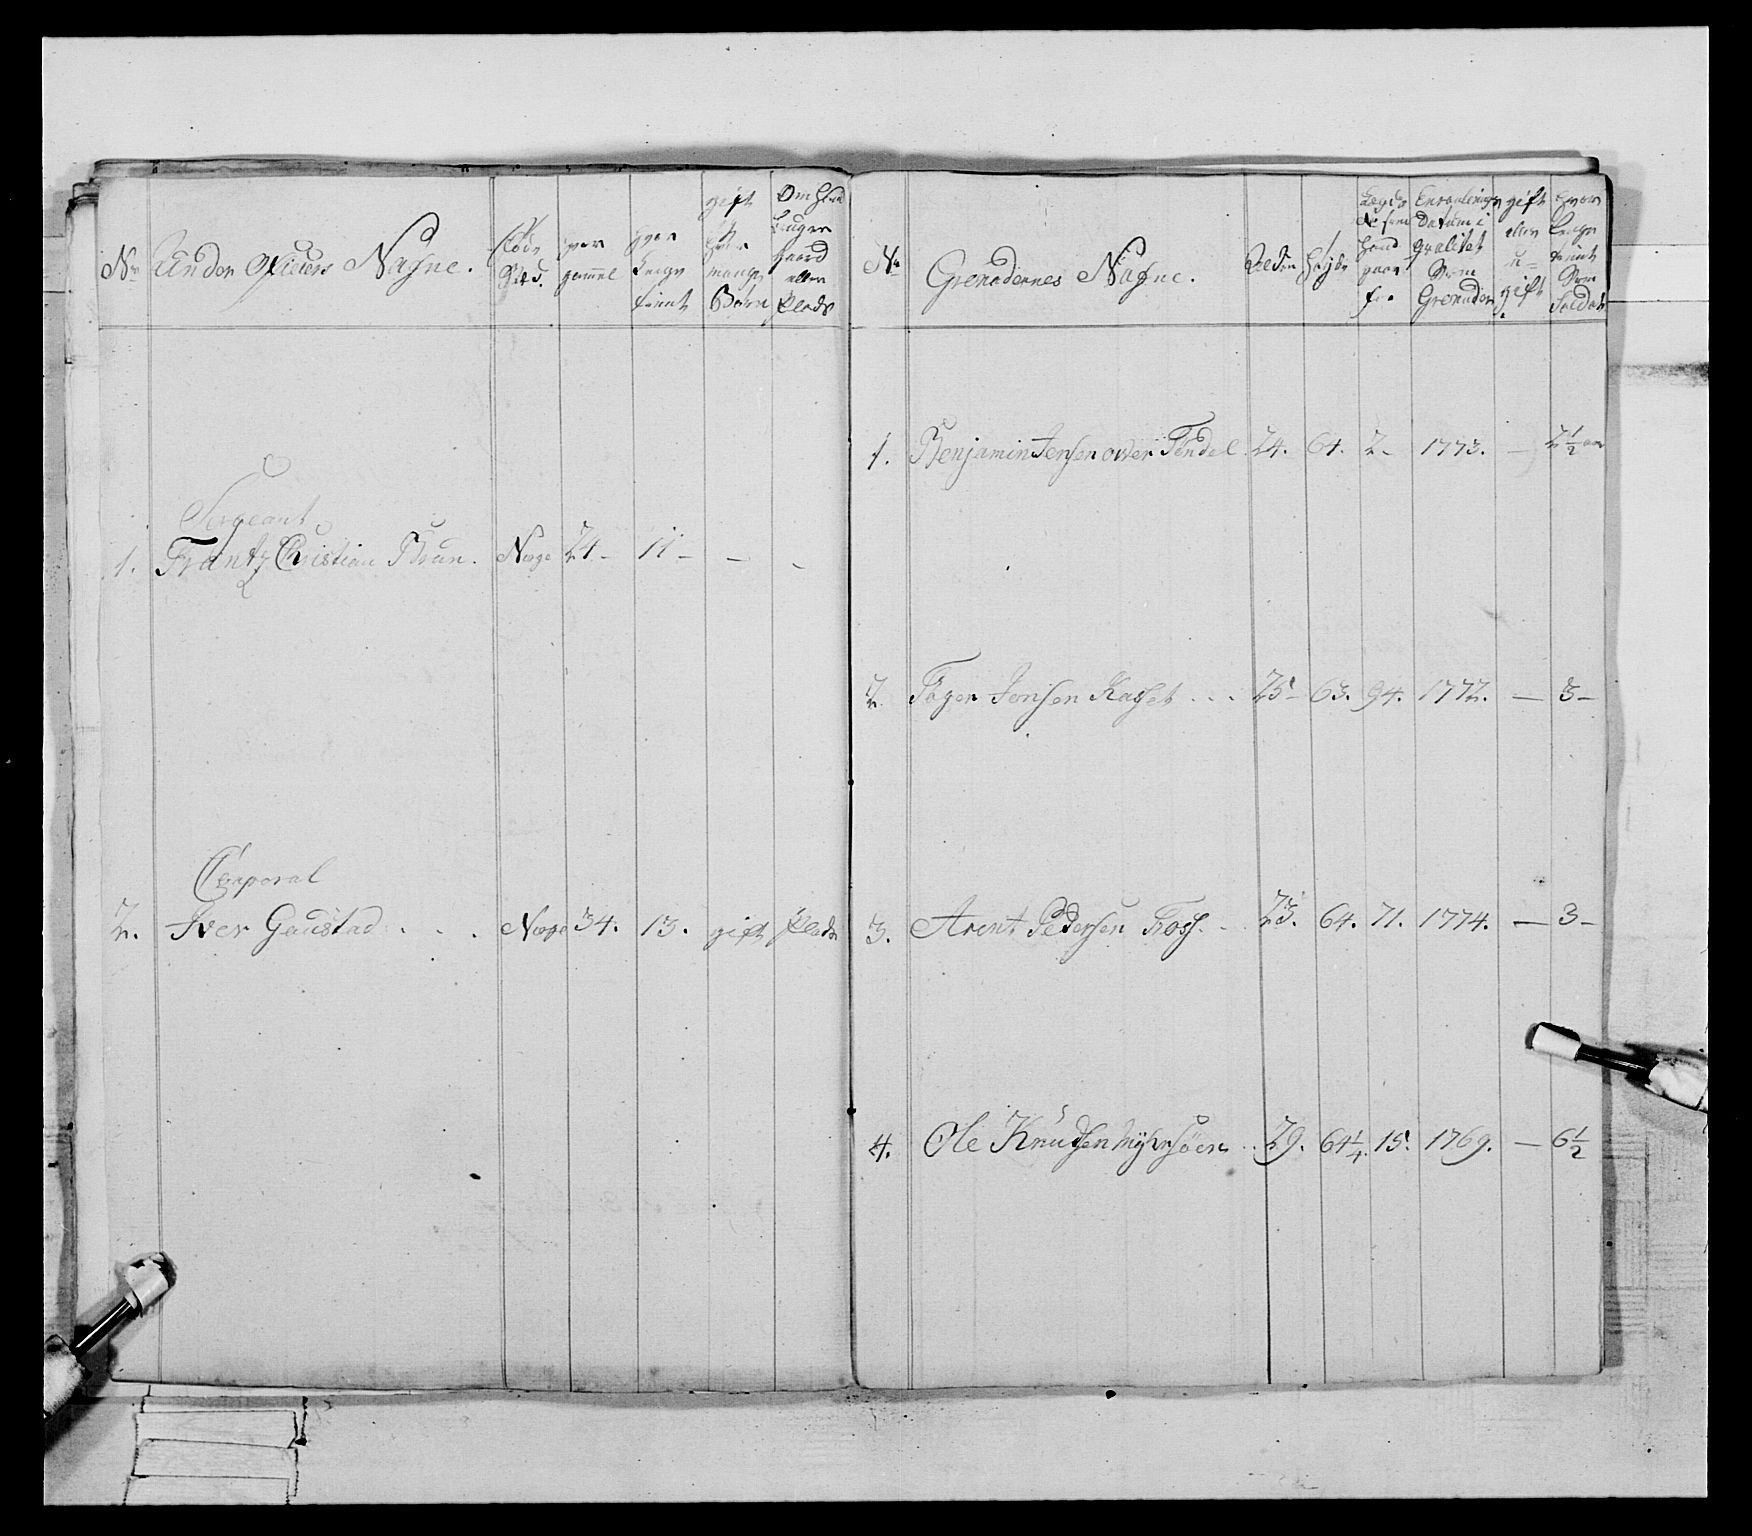 No Under Officiers Nafne. | Føde Sted. | hvor gammel | hvor Lenge tient | gift hvor mange Børn | Om hand bruger gaard eller Plads
Sergeant
1. Frantz Christian Brun. Norge 24 – 11 – – –
Corporal
2. Iver Gaustad . . . Norge 34. 13. gift Plads
No Grenaderernes Nafne. | Alder | Høyde | Lægds No som hand gaar for | Enroulerings Datum i qvalitet Som Grenader | gift eller u= gift | hvor Lenge tient Som Soldat
1. Benjamin Jensen over Tendel 24. 64. 2. 1773. – 2½ aar
2. Tøger Jensen Kasset . . . 25 – 63. 94. 1772. – 3 –
3. Arent Pedersen Foss . . 23. 64. 71. 1774. – 3 –
4. Ole Knudsen Myhrsøen . . 29. 64¼. 15. 1769. – 6½